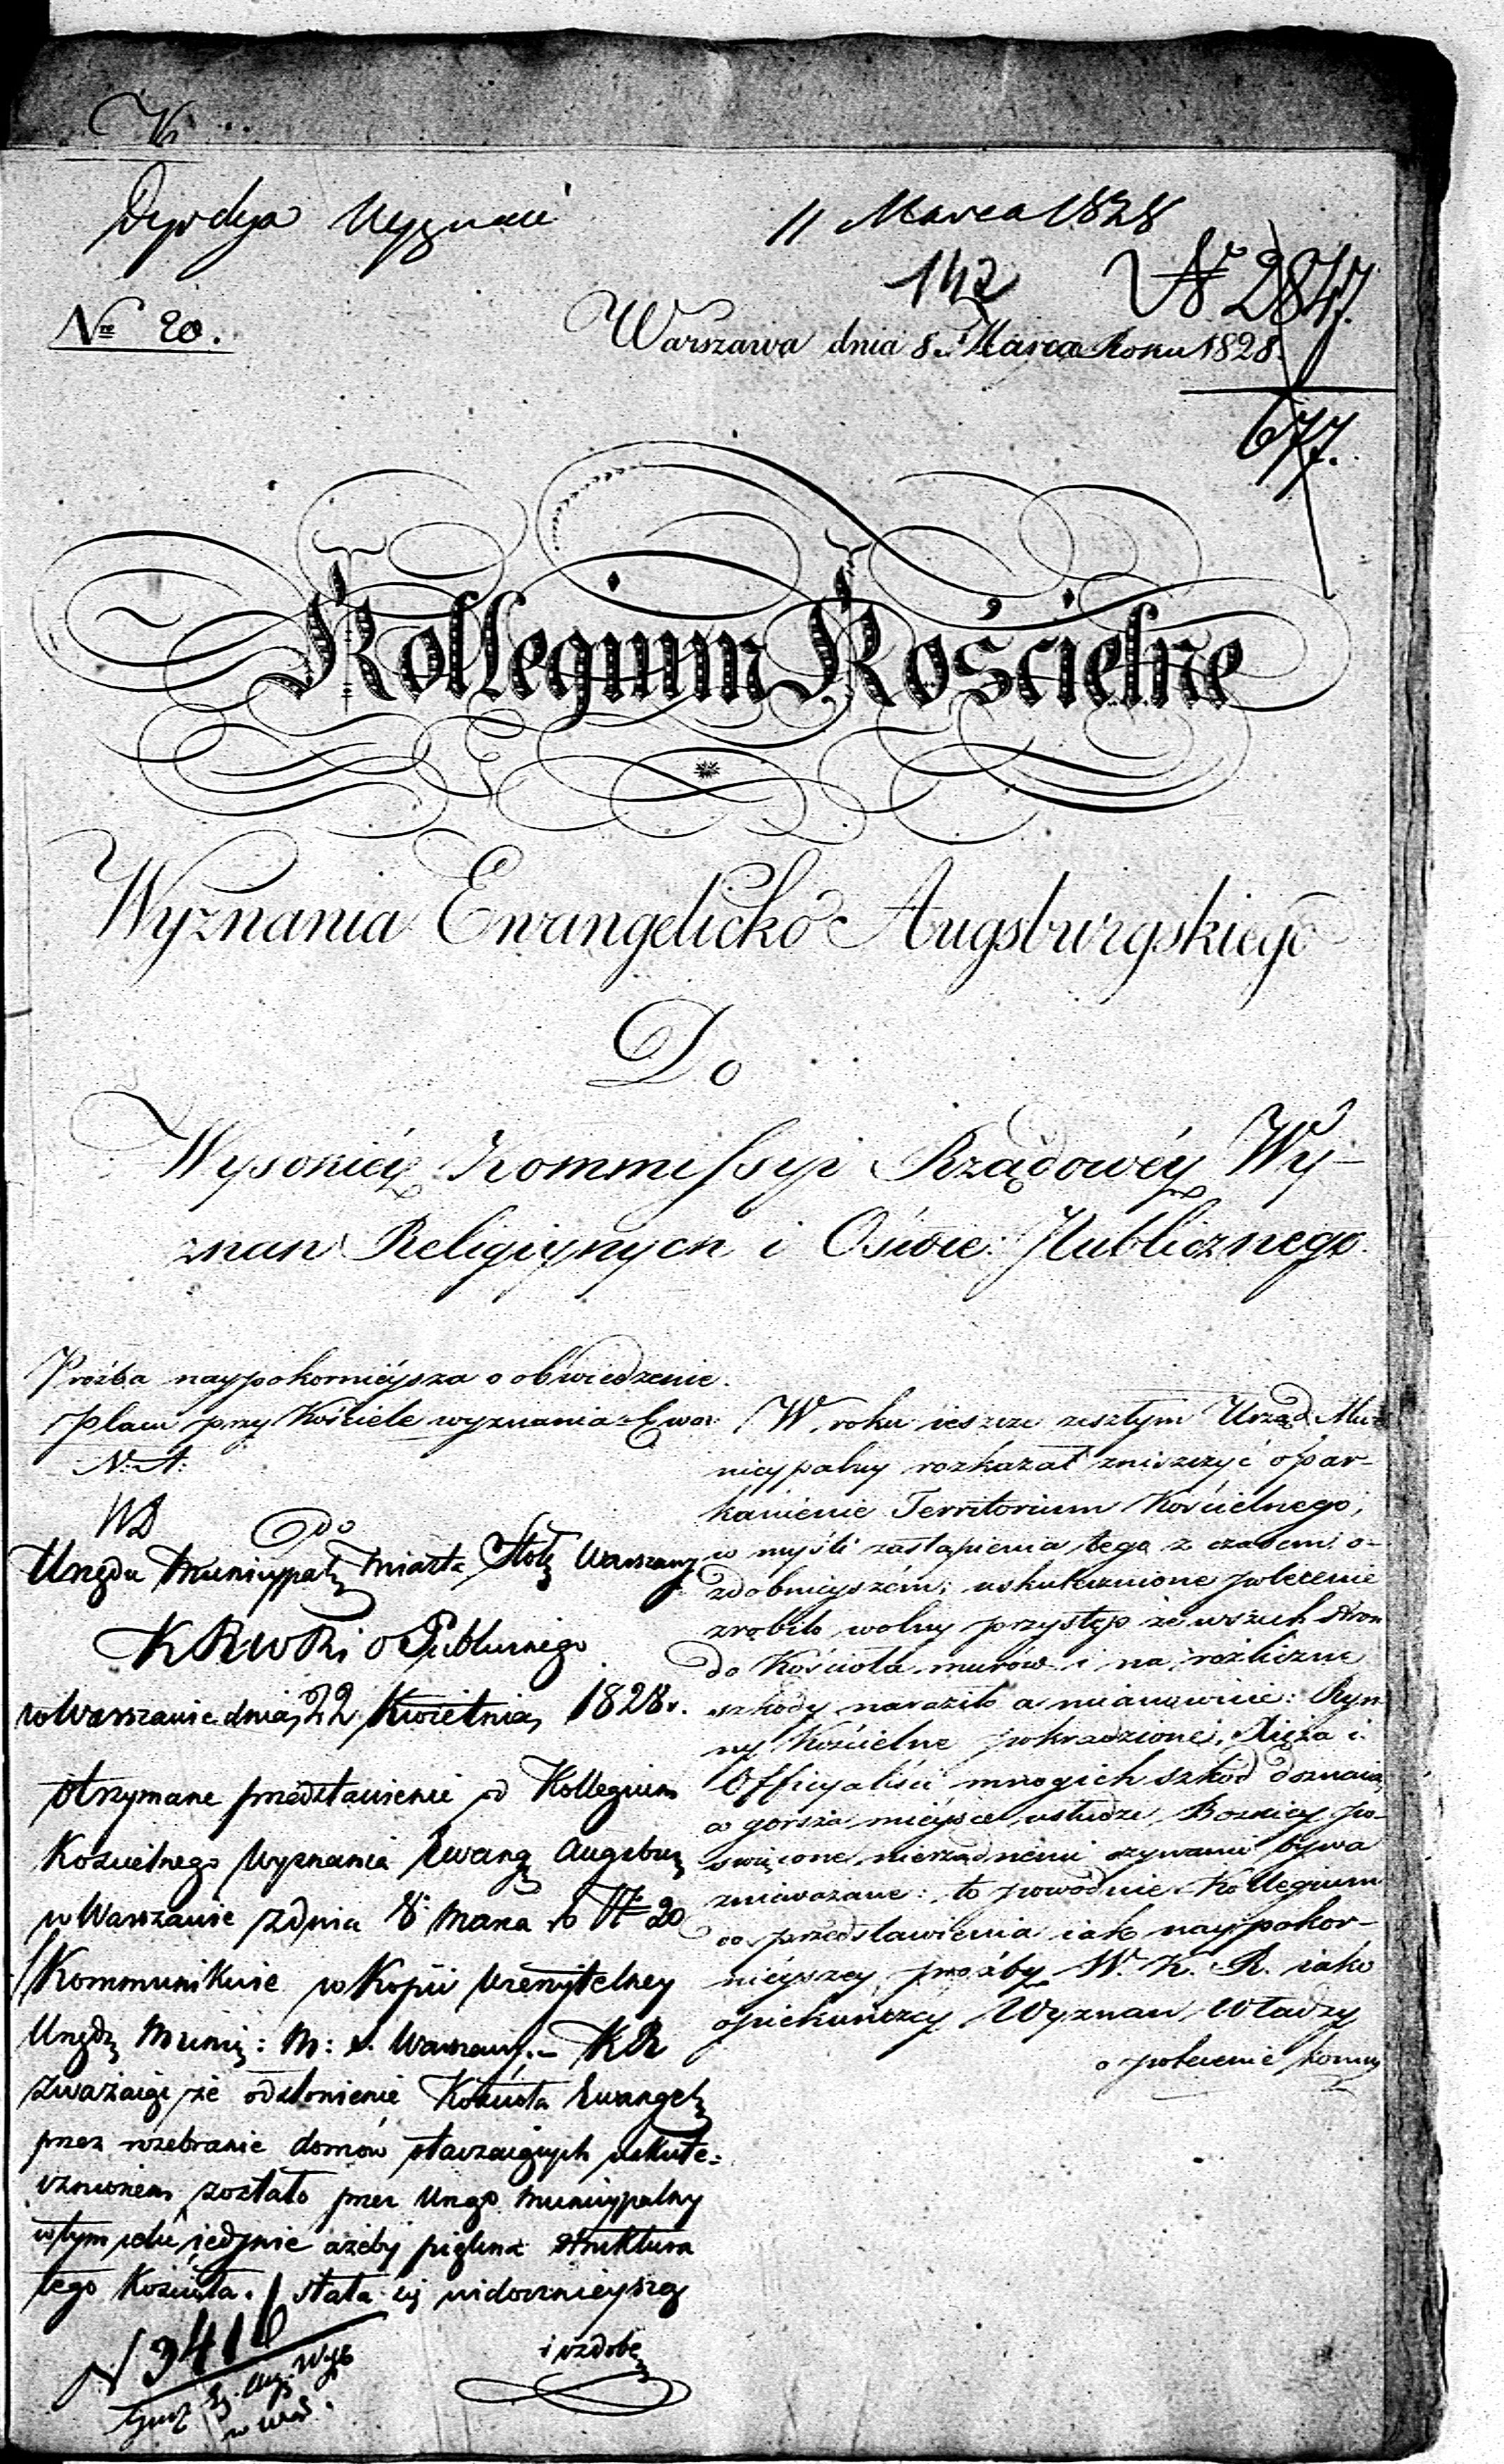 Dyrekcya Wyznań
11 Marca 1828
142
N 2847.
Nro 20.
Warszawa dnia 8. Marca Roku 1828.
677.
Kollegium Kościelne
Wyznania Ewangelicko Augsburgskiego
Do
Wysokiéy Kommissyi Rządowéy Wy-
znań Religiynych i Oświe: Publicznego.
Prożba naypokornieysza o obwiedzenie
placu przy Kościele wyznania Ewa:
N: A:
WD
Do
Urzędu Municypal Miasta Stoł Warszawy
K R W R i O Publicznego
w Warszawie dnia 22 Kwietnia 1828 r.
Otrzymane przedstawienie od Kollegium
Kościelnego Wyznania Ewang Augsbur
w Warszawie z dnia 8 Marca b N 20
Kommunikuie w Kopii wierzytelney
Urzędz Munic: M: S. Warszawy. – KR
zważaiąc że odsłonienie Kościoła Ewangel
przez rozebranie domów otaczaiących uskute=
cznionem zostało przez Urząd Municypalny
w tym celu jedynie ażeby piękna struktura
tego Kościoła stała się widocznieyszą
i ozdobę
N 3416
W roku ieszcze zeszłym Urząd Mu-
nicypalny rozkazał zniszczyć opar-
kanienie Territorium Kościelnego,
w myśli zastąpienia tego z czasem o-
zdobnieyszém; uskutecznione polecenie
zrobiło wolny przystęp ze wszech stron
do Kościoła murów i na rozliczne
szkody naraziło a mianowicie: Ryn-
ny Kościelne pokradzione, Xięża i
Officyaliści mnogich szkód doznaią,
a gorsza mieysce, usłudze Bozkiey po-
swięcone, nierządnemi czynami bywa
znieważane: to powoduie Kollegium
do przedstawienia iak naypokor-
nieyszey prożby W. K. R. iako
opiekuńczey Wyznań Władzy
o polecenie komu